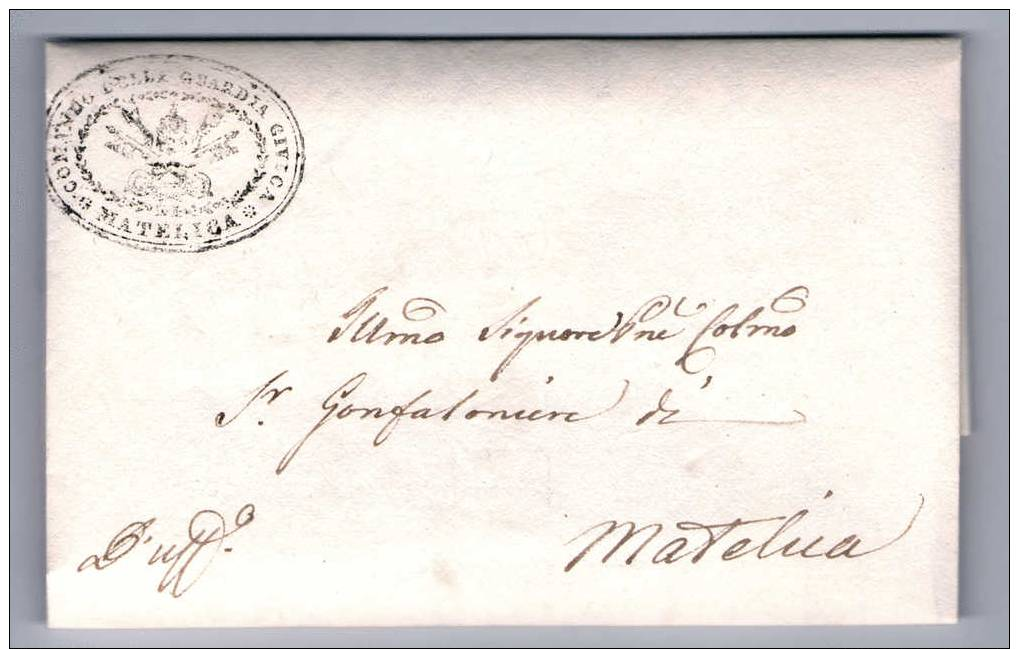 COMANDO DELLA GUARDIA CIVICA
MATELICA
Illmo Signore Pne Colmo
Sr. Gonfaloniere di
Matelica
D'uffo.